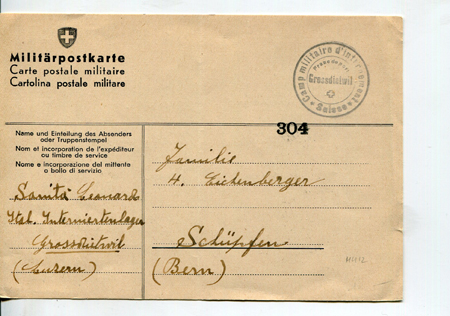 Militärpostkarte
Carte postale militaire
Cartolina postale militare
Camp militaire d'internement
Franc de Port
Grossdietwil
Suisse
304
Name und Einteilung des Absenders
oder Truppenstempel
Nom et incorporation de l'expéditeur
ou timbre de service
Nome e incorporazione del mittente
o bollo di servizio
Sanità Leonard
Ital. Interniertenlager
Grossdietwil
(Luzern)
Familie
H. Eichenberger
Schüpfen
(Bern)